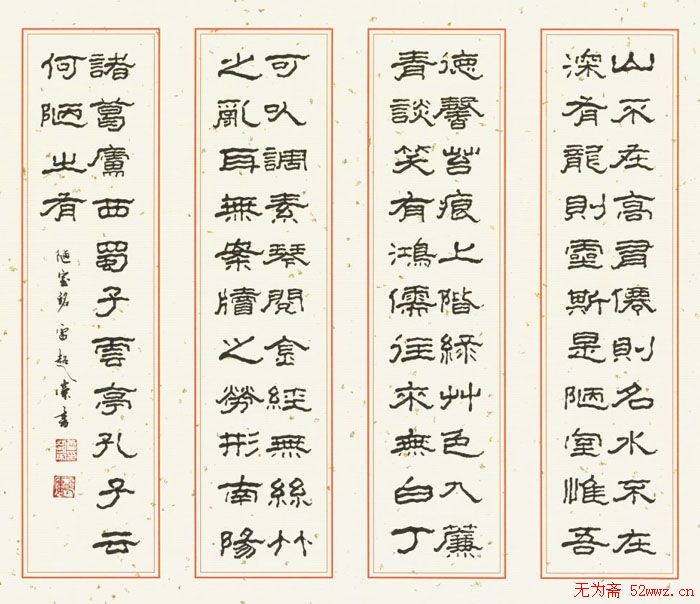 山不在高有僊則名水不在
深有龍則靈斯是陋室惟吾
德馨苔痕上階綠艸色入簾
青談笑有鴻儒往來無白丁
可以調素琴閱金經無絲竹
之亂耳無案牘之勞形南陽
諸葛廬西蜀子雲亭孔子云
何陋之有
陋室銘 雷超 書
无为斋 52wwz.cn